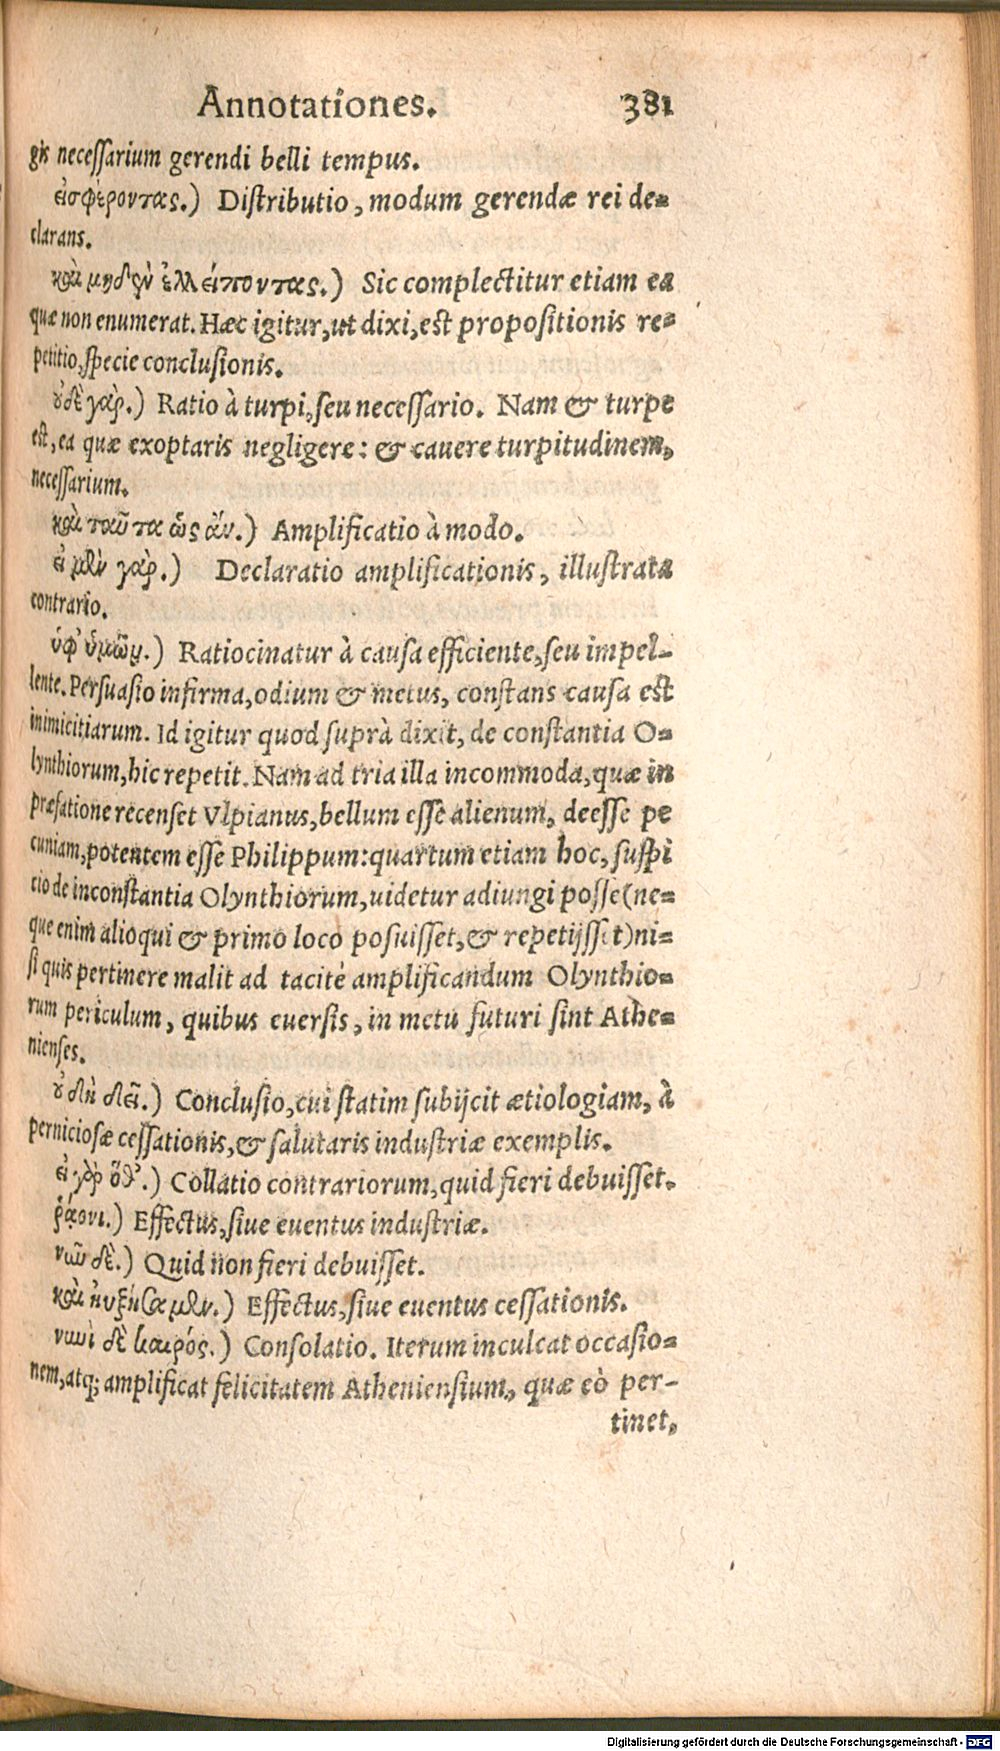 Annotationes. 381
gis necessarium gerendi belli tempus.
εἰσφέροντας.) Distributio, modum gerendæ rei de=
clarans.
καὶ μηδὲν ἐλλείποντας.) Sic complectitur etiam ea
quæ non enumerat. Hæc igitur, ut dixi, est propositionis re=
petitio, specie conclusionis.
οὐδὲ γὰρ.) Ratio à turpi, seu necessario. Nam & turpe
est, ea quæ exoptaris negligere: & cauere turpitudinem,
necessarium.
καὶ ταῦτα ὡς ἄν.) Amplificatio à modo.
εἰ μὲν γὰρ.) Declaratio amplificationis, illustrata
contrario.
ὑφ' ὑμῶν.) Ratiocinatur à causa efficiente, seu impel-
lente. Persuasio infirma, odium & metus, constans causa est
inimicitiarum. Id igitur quod suprà dixit, de constantia O=
lynthiorum, hic repetit. Nam ad tria illa incommoda, quæ in
præfatione recenset Vlpianus, bellum esse alienum, deesse pe
cuniam, potentem esse Philippum: quartum etiam hoc, suspi
cio de inconstantia Olynthiorum, uidetur adiungi posse (ne=
que enim alioqui & primo loco posuisset, & repetijsset) ni=
si quis pertinere malit ad tacitè amplificandum Olynthio=
rum periculum, quibus euersis, in metu futuri sint Athe=
nienses.
οὐ δὴ δεῖ.) Conclusio, cui statim subijcit ætiologiam, à
perniciosæ cessationis, & salutaris industriæ exemplis.
εἰ γὰρ ὅθ'.) Collatio contrariorum, quid fieri debuisset.
ῥᾴονι.) Effectus, siue euentus industriæ.
νῦν δὲ.) Quid non fieri debuisset.
καὶ ηὐξήσαμεν.) Effectus, siue euentus cessationis.
νυνὶ δὲ καιρός.) Consolatio. Iterum inculcat occasio=
nem, atq; amplificat felicitatem Atheniensium, quæ eò per-
tinet,
Digitalisierung gefördert durch die Deutsche Forschungsgemeinschaft - DFG